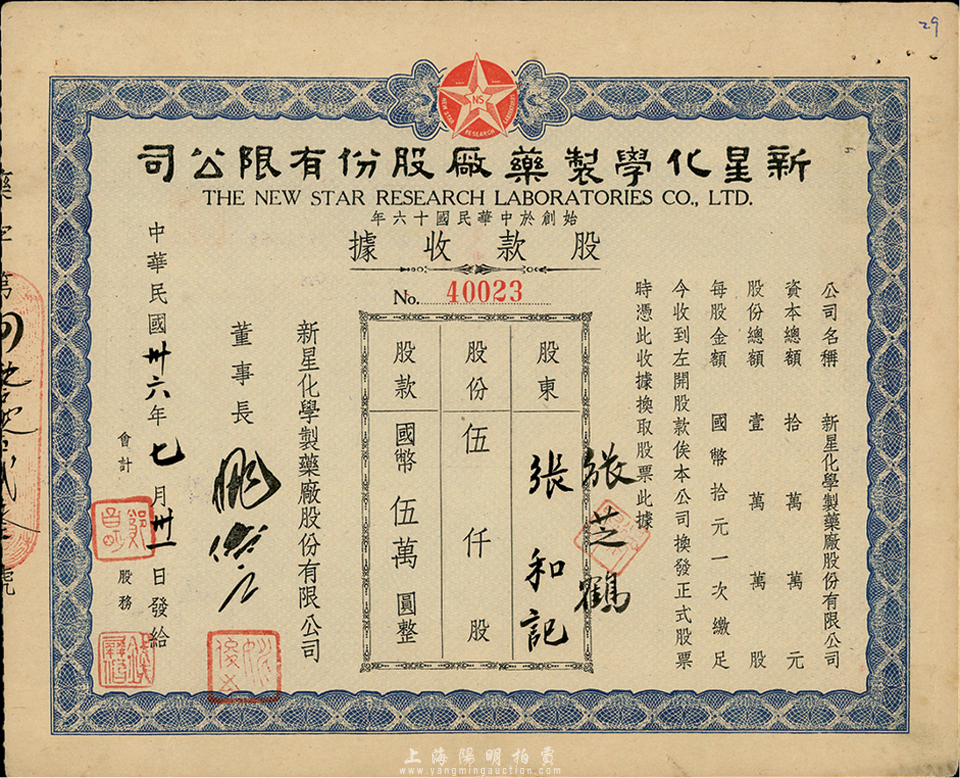 29
NS
NEW STAR RESEARCH LABORATORIES
司公限有份股廠藥製學化星新
THE NEW STAR RESEARCH LABORATORIES CO., LTD.
年六十國民華中於創始
據收款股
No. 40023
公司名稱 新星化學製藥廠股份有限公司
資本總額 拾萬萬元
股份總額 壹萬萬股
每股金額 國幣拾元一次繳足
今收到左開股款俟本公司換發正式股票
時憑此收據換取股票此據
張芝鶴
股東 張和記
股份 伍仟股
股款 國幣伍萬圓整
新星化學製藥廠股份有限公司
董事長
中華民國卅六年七月卅一日發給
會計
股務
藥字第
號
上海陽明拍賣
www.yangmingauction.com